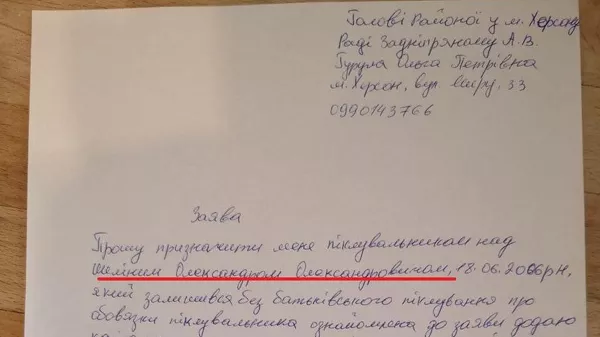 Голові Районої у м. Херсоні
Раді Задніпряному А.В.
Гурула Ольга Петрівна
м. Херсон, вул. Миру, 33
0990143766
Заява
Прошу призначити мене піклувальником над
Олександром Олександровичом, 18.06.2006рн,
який залишився без батьківського піклування про
обовязки піклувальника ознайомлена до заяви додаю